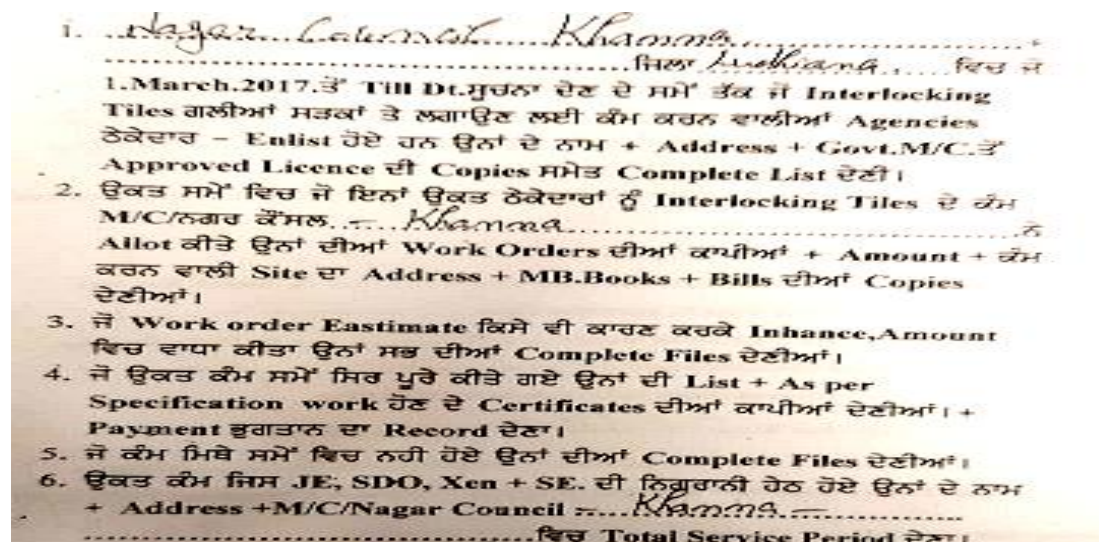 1. Nagar Council Khanna
ਜਿਲਾ Ludhiana ਵਿਚ ਜੋ
1.March.2017.ਤੋਂ Till Dt.ਸੂਚਨਾ ਦੇਣ ਦੇ ਸਮੇਂ ਤੱਕ ਜੋ Interlocking
Tiles ਗਲੀਆਂ ਸੜਕਾਂ ਤੇ ਲਗਾਉਣ ਲਈ ਕੰਮ ਕਰਨ ਵਾਲੀਆਂ Agencies
ਠੇਕੇਦਾਰ – Enlist ਹੋਏ ਹਨ ਉਨਾਂ ਦੇ ਨਾਮ + Address + Govt.M/C.ਤੋਂ
Approved Licence ਦੀ Copies ਸਮੇਤ Complete List ਦੇਣੀ।
2. ਉਕਤ ਸਮੇਂ ਵਿਚ ਜੋ ਇਨਾਂ ਉਕਤ ਠੇਕੇਦਾਰਾਂ ਨੂੰ Interlocking Tiles ਦੇ ਕੰਮ
M/C/ਨਗਰ ਕੌਂਸਲ.– Khanna ਨੇ
Allot ਕੀਤੇ ਉਨਾਂ ਦੀਆਂ Work Orders ਦੀਆਂ ਕਾਪੀਆਂ + Amount + ਕੰਮ
ਕਰਨ ਵਾਲੀ Site ਦਾ Address + MB.Books + Bills ਦੀਆਂ Copies
ਦੇਣੀਆਂ।
3. ਜੋ Work order Eastimate ਕਿਸੇ ਵੀ ਕਾਰਣ ਕਰਕੇ Inhance,Amount
ਵਿਚ ਵਾਧਾ ਕੀਤਾ ਉਨਾਂ ਸਭ ਦੀਆਂ Complete Files ਦੇਣੀਆਂ।
4. ਜੋ ਉਕਤ ਕੰਮ ਸਮੇਂ ਸਿਰ ਪੂਰੇ ਕੀਤੇ ਗਏ ਉਨਾਂ ਦੀ List + As per
Specification work ਹੋਣ ਦੇ Certificates ਦੀਆਂ ਕਾਪੀਆਂ ਦੇਣੀਆਂ। +
Payment ਭੁਗਤਾਨ ਦਾ Record ਦੇਣਾ।
5. ਜੋ ਕੰਮ ਮਿਥੇ ਸਮੇਂ ਵਿਚ ਨਹੀ ਹੋਏ ਉਨਾਂ ਦੀਆਂ Complete Files ਦੇਣੀਆਂ।
6. ਉਕਤ ਕੰਮ ਜਿਸ JE, SDO, Xen + SE. ਦੀ ਨਿਗਰਾਨੀ ਹੇਠ ਹੋਏ ਉਨਾਂ ਦੇ ਨਾਮ
+ Address +M/C/Nagar Council – Khanna –
ਵਿਚ Total Service Period ਦੇਣਾ।